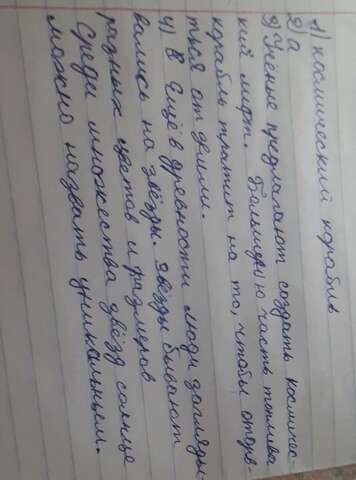 1) космический корабль
2) а
3) Учёные предлагают создать космичес-
кий лифт. Большую часть топлива
корабль тратит на то, чтобы оторв-
ться от земли.
4) В Ещё в древности люди загляды-
вались на звёзды. Звёзды бывают
разных цветов и размеров
Среди множества звёзд солнце
можно назвать уникальным.